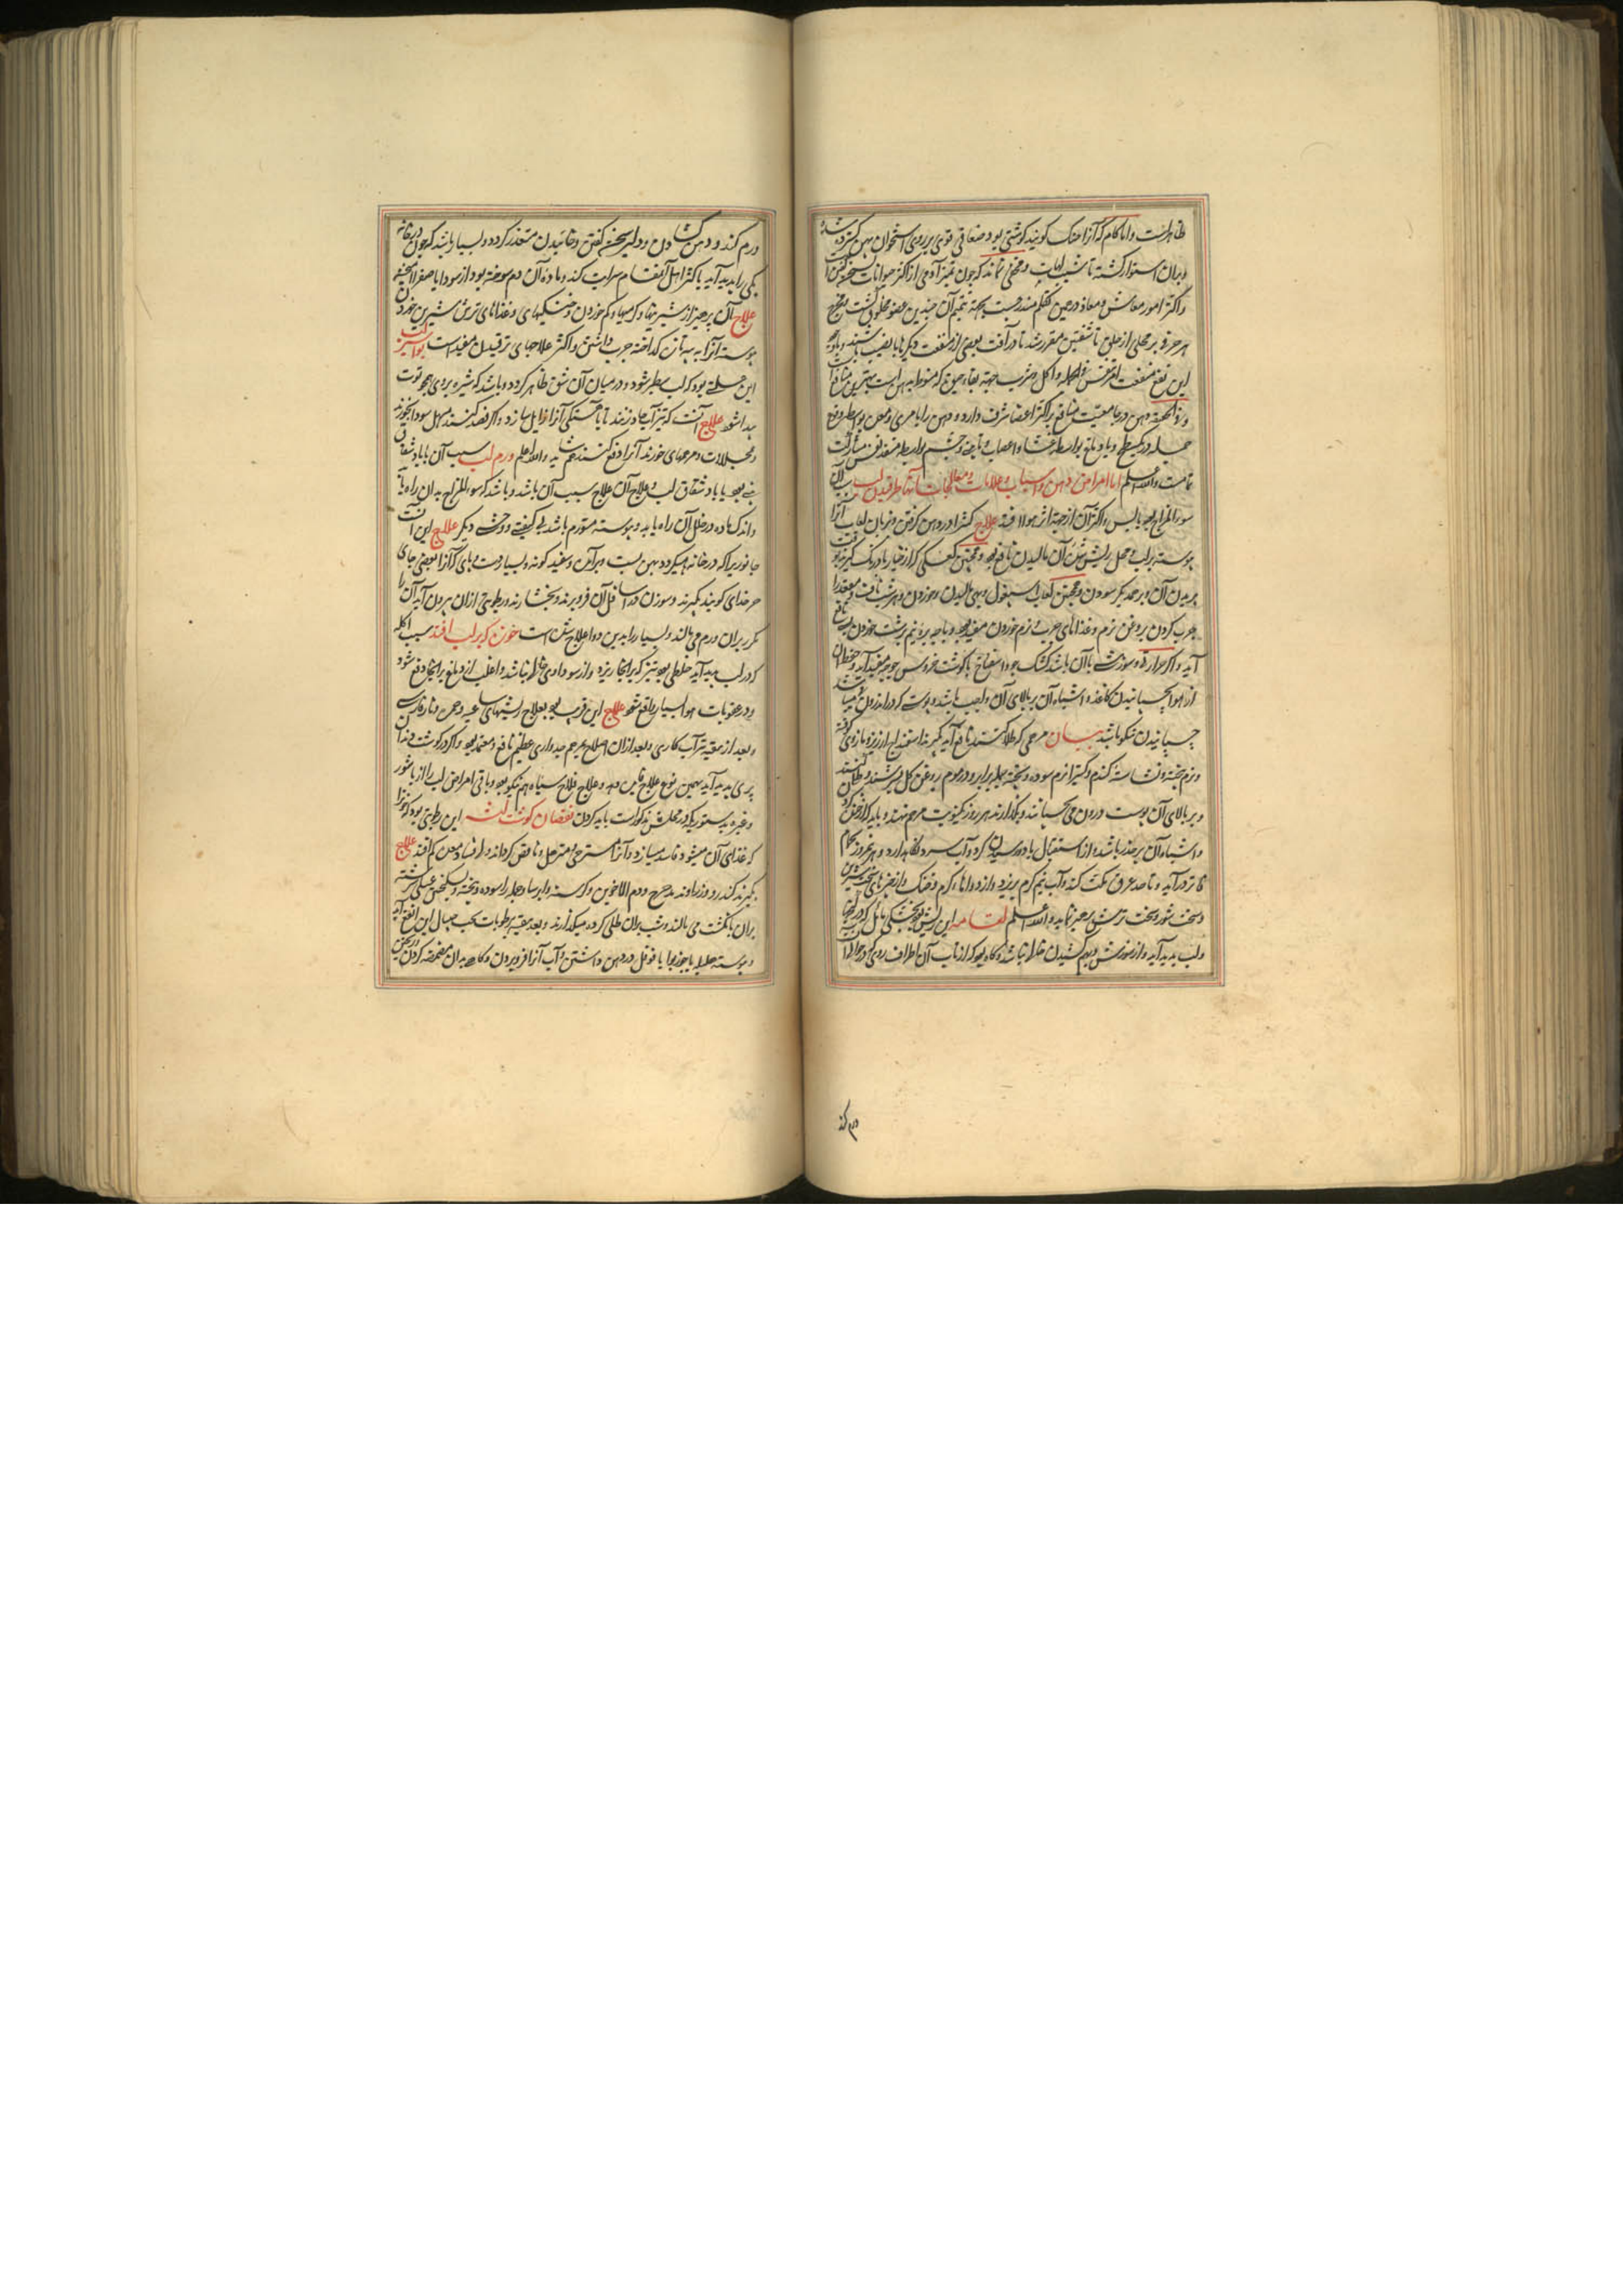 ظاهرست و اما کام که آنرا حنک گویند گوشتی بود صفاقی قوی بر روی استخوان پهن گسترده شده
و بران استوار گشته تا شب لهات و مخفی نماند که چون تمیز آدمی از اکثر حیوانات بسخن گفتن
و اکثر امور معاش و معاد در حین تکلم مندرجست بجهة تتمیم آن چندین عضو مخلوق گشت و مخرج
هر حرفی بر محلی از حلق تا شفتین مقرر شد تا در آفت بعضی از منفعت دیگرها بی نصیب نباشند
این نفع منفعت امر تنفس فی الجمله و اکل و شرب جهة بقاء حیوة که منوط به
و دهن در جامعیت منافع بر اکثر اعضا شرف دارد و دهن را با مری و معده بواسطه وضع
جمله در یک سطح و با دماغ بواسطه غشاء و اعصاب و با بینی و چشم بواسطه منفذ نفس مشارکت
تمامست والله اعلم اما امراض دهن و اسباب و علامات و معالجات آنها طرقیدن لب سبب آن
سوء المزاج بود یابس و اکثر آن از جهة اثر هوا افتد علاج کثیرا در دهن گرفتن و بزبان لعاب آنرا
پیوسته بر لب و محل ریش شدن آن مالیدن نافع بود و همچنین کفکی که از خیار بادرنگ گیرند بوقت
بریدن آن و بر همدیگر سودن و همچنین لعاب اسپغول و بهی مالیدن و خوردن و هر شب ناف و مقعد را
چرب کردن بروغن نرم و غذاهای چرب و نرم خوردن مفید بود و پاچه بره و نیم برشت خوردن بسی نافع
آید و اگر حرارة و سوزش با آن باشد کشک جو و اسفناخ با گوشت خروس جوجه مفید آید و حفظ آن
از هوا بچسبانیدن کاغذ و اشباه آن بر بالای آن واجب باشد و پوست که در اندرون نی میباشد
چسپانیدن نیکو باشد بیان مرهمی که طلا کنند نافع آید گیرند اسفیداج ارزیز و مازوی کوفته
و نرم بیخته و نشاسته گندم و کتیرا نرم سوده و بیخته جمله برابر و در موم روغن گل بسرشند و طلا کنند
و بر بالای آن پوست درون نی چسپانند و بگذارند هر روز یک نوبت مرهم نهند و باید که از خنده
و اشباه آن بر حذر باشد و از استقبال باد و رسیدن گرد و آب سرد نگاه دارد و هر روز بحمام
فاتر درآید و تا حد عرق مکث کند و آب نیم گرم بریزد و از دواها گرم و خشک و از چیزهای سخت شیرین
و سخت شور و سخت ترش پرهیز نماید والله اعلم لقامه این ریشی بود بخشکی مائل که در کنجها
و لب پدید آید و از سوزش و بهم کشیدن خالی نباشد و گاه بود که از تاب آن اطراف روی گردد حوالی
ورم کند
ورم کند و دهن گشادن و دلیر سخن گفتن و خائیدن متعذر گردد و بسیار باشد که چون در خانه
یکی را پدید آید با اکثر اهل آن مقام سرایت کند و ماده آن دم سوخته بود از سودا یا صفرا آمیخته
علاج آن پرهیز از شیرینیها و گرمیها و کم خوردن و خشکیهای و غذاهای ترش شیرین خوردن
پیوسته آنرا به پیه تازه گداخته چرب داشتن و اکثر علاجهای ترقیدن مفید است بواسیر لب
این علتی بود که لب سطبر شود و در میان آن شق ظاهر گردد و باشد که شیره بر روی همچو توت
پیدا شود علاج آنست که تیزآب کار زنند تا بآهستگی آنرا زایل سازد و اگر فصد کنند و مسهل سودا بخورند
و محللات و مرهمهای خورنده آنرا دفع کنند هم شاید والله اعلم ورم لب سبب آن یا باد شقاق
بینی بود یا باد شقاق لب و علاج آن علاج سبب آن باشد و باشد که سوء المزاج بدان راه یابد
و اندک ماده در خلل آن راه یابد و پیوسته متورم باشد بی کیفیتی و وحشتی دیگر علاج این آنست
جانوریرا که در خانه میگردد پهن پست و برآمده و سفید گونه و بسیار دست و پای که آنرا بعضی جای
خر خدای گویند بگیرند و سوزن در اسافل آن فرو برند و بفشارند و رطوبتی ازان بیرون آید آن را
مکرر بران ورم می مالند و بسیار را بدین دوا علاج شده است خوره که بر لب افتد سبب آکله
که در لب پدید آید خلطی بود تیز که برانجا ریزد و از سوداوی خالی نباشد و اغلب از دماغ برانجا دفع شود
و در عقوبات هوا بسیار واقع شود علاج این قریب بود بعلاج ریشهای ساعیه و خوره و نار فارسی
و بعد از تنقیه تیزآب کاری و بعد ازان اصلاح بمرهم جدواری عظیم نافع و معتمد بود و اگر در گوشت دندان
پری پدید آید بهمین نوع علاج فایده دهد و علاج قلاع سیاه هم نیکو بود و باقی امراض لب را از باشور
و غیره بدستوریکه در محلش مذکورست باید کردن نقصان گوشت لثه این رطوبتی بود که تیز
که غذای آن میشود فاسد میسازد و آنرا مسترخی و مترهل و ناقص گرداند و از فساد معده کم افتد علاج
بگیرند کندر و زراوند مدحرج و دم الاخوین و کرسنه و ایرسا و جمله را سوده و بیخته و بسکنجبین عسلی سرشته
بران بانگشت می مالند و شب بران طلی کرده میگذارند و بعد تنقیه رطوبات بحب صبر این نافع آید
و پیوسته هلیله یا جوزبوا یا فوفل در دهن داشتن و آب آنرا فرو بردن و گاهی بدان مضمضه کردن